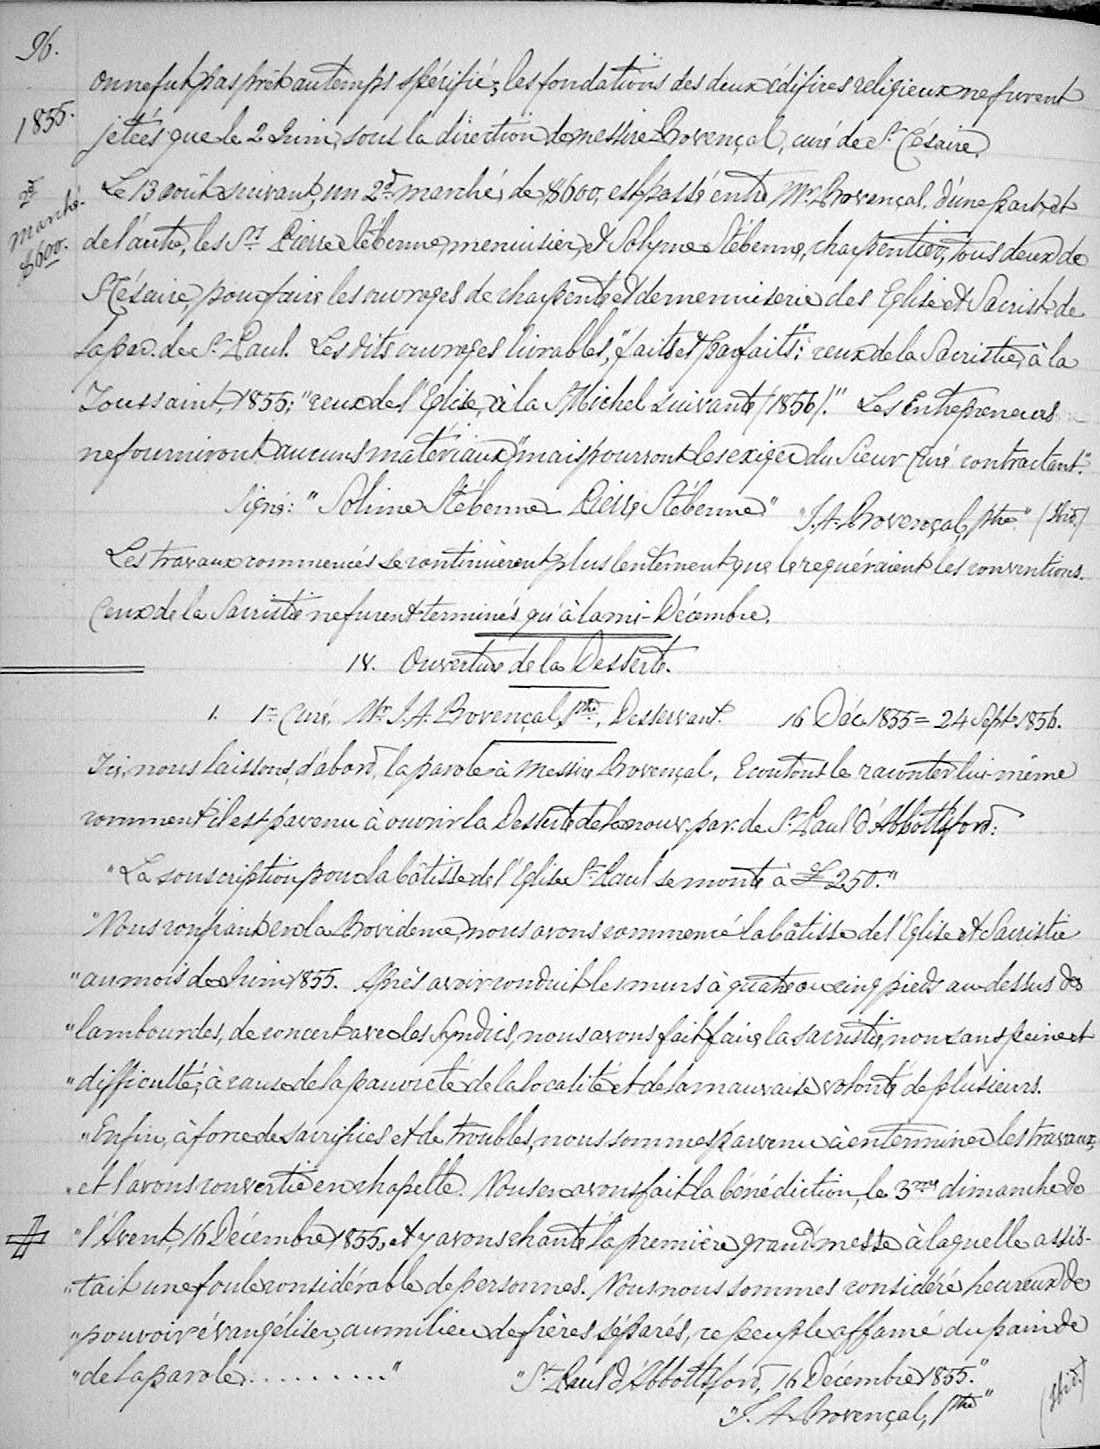 96.
on ne fut pas prêt au temps spécifié; les fondations des deux édifices religieux ne furent
1855.
jetées que le 2 Juin, sous la direction de messire Provençal, curé de St Césaire.
2d marché. $600.
Le 13 août suivant, un 2d marché, de $600, est passé entre Mr. Provençal, d'une part, et
de l'autre, les Srs Pierre Stébenne, menuisier, & Solyme Stébenne, charpentier, tous deux de
St Césaire, pour faire les ouvrages de charpente & de menuiserie des Eglise et Sacristie de
la par. de St Paul. Les dits ouvrages livrables, "faits et parfaits"; ceux de la Sacristie, à la
Toussaint, 1855; "ceux de l'Eglise, à la St Michel suivante (1856)." Les Entrepreneurs
ne fourniront aucuns matériaux, "mais pourront les exiger du Sieur Curé contractant."
Signé: "Solime Stébenne Pierre Stébenne" "J. A. Provençal, Ptre." (Ibid.)
Les travaux commencés se continuèrent plus lentement que le requéraient les conventions.
Ceux de la Sacristie ne furent terminés qu'à la mi-Décembre.
18. Ouverture de la Desserte.
1. 1er Curé. Mr. J. A. Provençal, Ptre, Desservant. 16 Déc. 1855 = 24 Sept. 1856.
Ici, nous laissons, d'abord, la parole à Messire Provençal. Ecoutons le raconter lui-même
comment il est parvenu à ouvrir la Desserte de la nouv. par. de St Paul d'Abbottsford:
"La souscription pour la bâtisse de l'Eglise St Paul se monte à £250."
"Nous confiant en la Providence, nous avons commencé la bâtisse de l'Eglise et Sacristie
"au mois de Juin, 1855. Après avoir conduit les murs à quatre ou cinq pieds au-dessus des
"lambourdes, de concert avec les Syndics, nous avons fait faire la sacristie, non sans peine et
"difficulté, à cause de la pauvreté de la localité et de la mauvaise volonté de plusieurs.
"Enfin, à force de sacrifices et de troubles, nous sommes parvenu à en terminer les travaux,
"et l'avons convertie en chapelle. Nous en avons fait la bénédiction, le 3me dimanche de
"l'Avent, 16 Décembre 1855, et y avons chanté la première grand'messe à laquelle assis-
"tait une foule considérable de personnes. Nous nous sommes considéré heureux de
"pouvoir évangéliser, au milieu de frères séparés, ce peuple affamé du pain de
"de la parole.........." "St Paul d'Abbottsford, 16 Décembre 1855."
"J. A. Provençal, Ptre" (Ibid.)